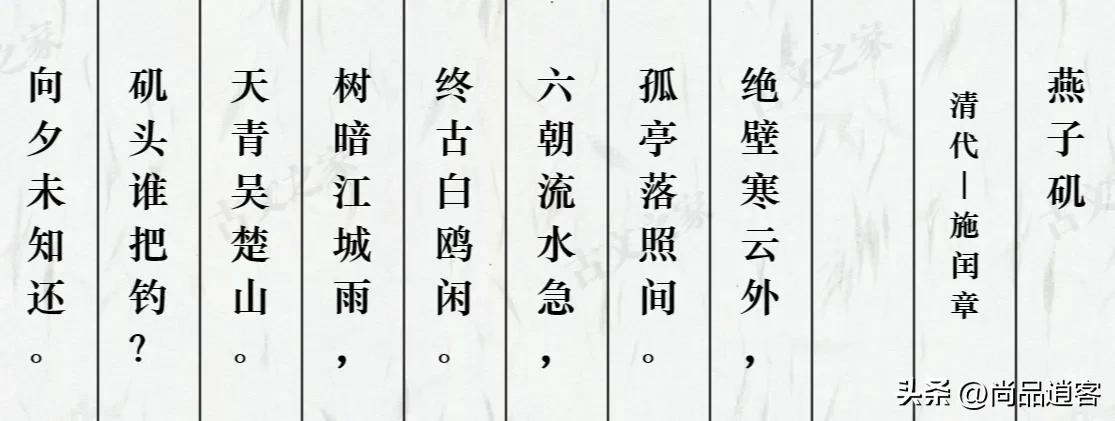 燕子矶
清代—施闰章
绝壁寒云外，
孤亭落照间。
六朝流水急，
终古白鸥闲。
树暗江城雨，
天青吴楚山。
矶头谁把钓？
向夕未知还。
头条 @尚品逍客
古文之家
古文之家
古文之家